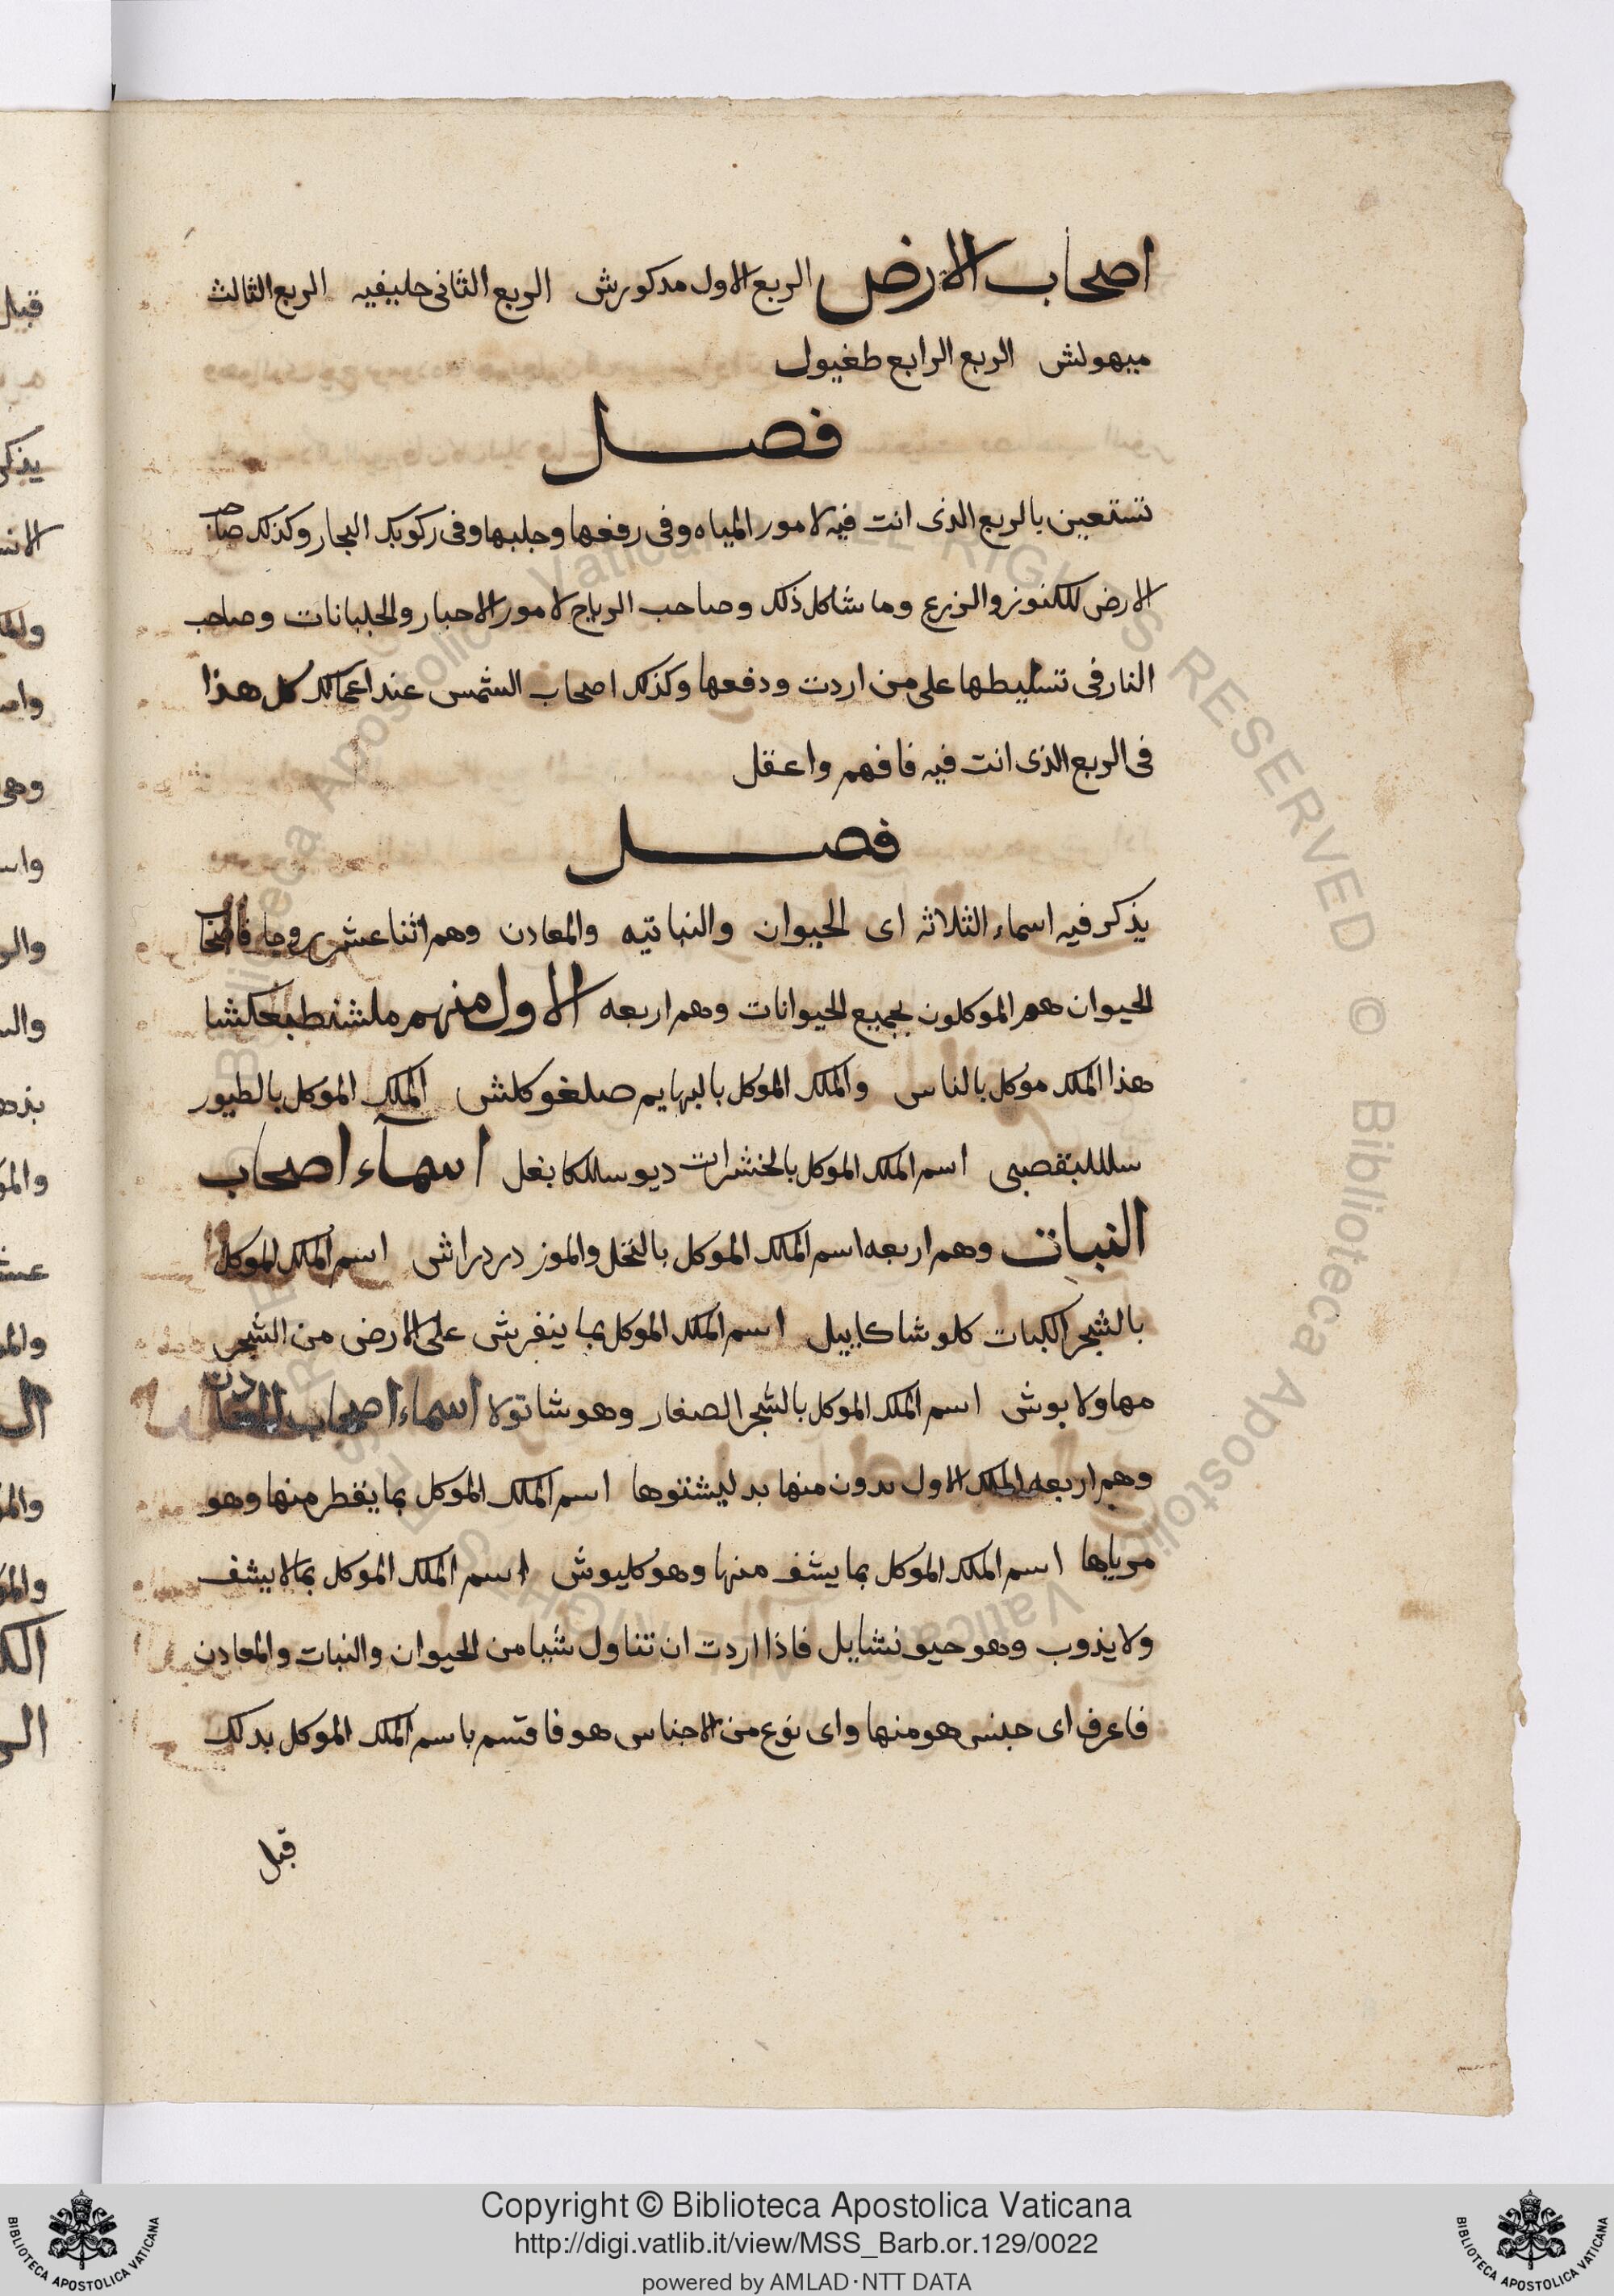 اصحاب الارض الربع الاول مدكورش الربع الثانى حليفيه الربع الثالث
ميهولش الربع الرابع طغيول
فصل
تستعين بالربع الذى انت فيه لامور المياه وفى رفعها وجلبها وفى ركوبك البحار وكذلك صاحب
الارض للكنوز والزرع وما شاكل ذلك وصاحب الرياح لامور الاحبار والجلبانات وصاحب
النار فى تسليطها على من اردت ودفعها وكذلك اصحاب الشمس عند اعمالك كل هذا
فى الربع الذى انت فيه فافهم واعقل
فصل
يذكر فيه اسماء الثلاثه اى الحيوان والنباتيه والمعادن وهم اثنا عشر روحا فاصحاب
الحيوان هم الموكلون بجميع الحيوانات وهم اربعه الاول منهم ملشنطبعكشا
هذا الملك موكل بالناس والملك الموكل بالبهايم صلغوكلش الملك الموكل بالطيور
سلللبقصبى اسم الملك الموكل بالخشرات ديوسللكا بغل اسمآء اصحاب
النبات وهم اربعه اسم الملك الموكل بالنخل والموز دردراش اسم الملك الموكل
بالشجر الكبات كلوشاكاييل اسم الملك الموكل بما ينفرش على الارض من الشجر
مهاولابوش اسم الملك الموكل بالشجر الصغار وهو شاتولا اسماء اصحاب المعادن
وهم اربعه الملك الاول بدون منها بدليشتوها اسم الملك الموكل بما يقطر منها وهو
مرياها اسم الملك الموكل بما يشف منها وهو كليوش اسم الملك الموكل بما لا يشف
ولا يذوب وهو حيونشايل فاذا اردت ان تناول شيا من الحيوان والنبات والمعادن
فاعرف اى جنس هو منها واى نوع من الاجناس هو فاقسم باسم الملك الموكل بدلك
قبل
قبال
يذكر
Copyright © Biblioteca Apostolica Vaticana
http://digi.vatlib.it/view/MSS_Barb.or.129/0022
powered by AMLAD·NTT DATA
BIBLIOTECA APOSTOLICA VATICANA
BIBLIOTECA APOSTOLICA VATICANA